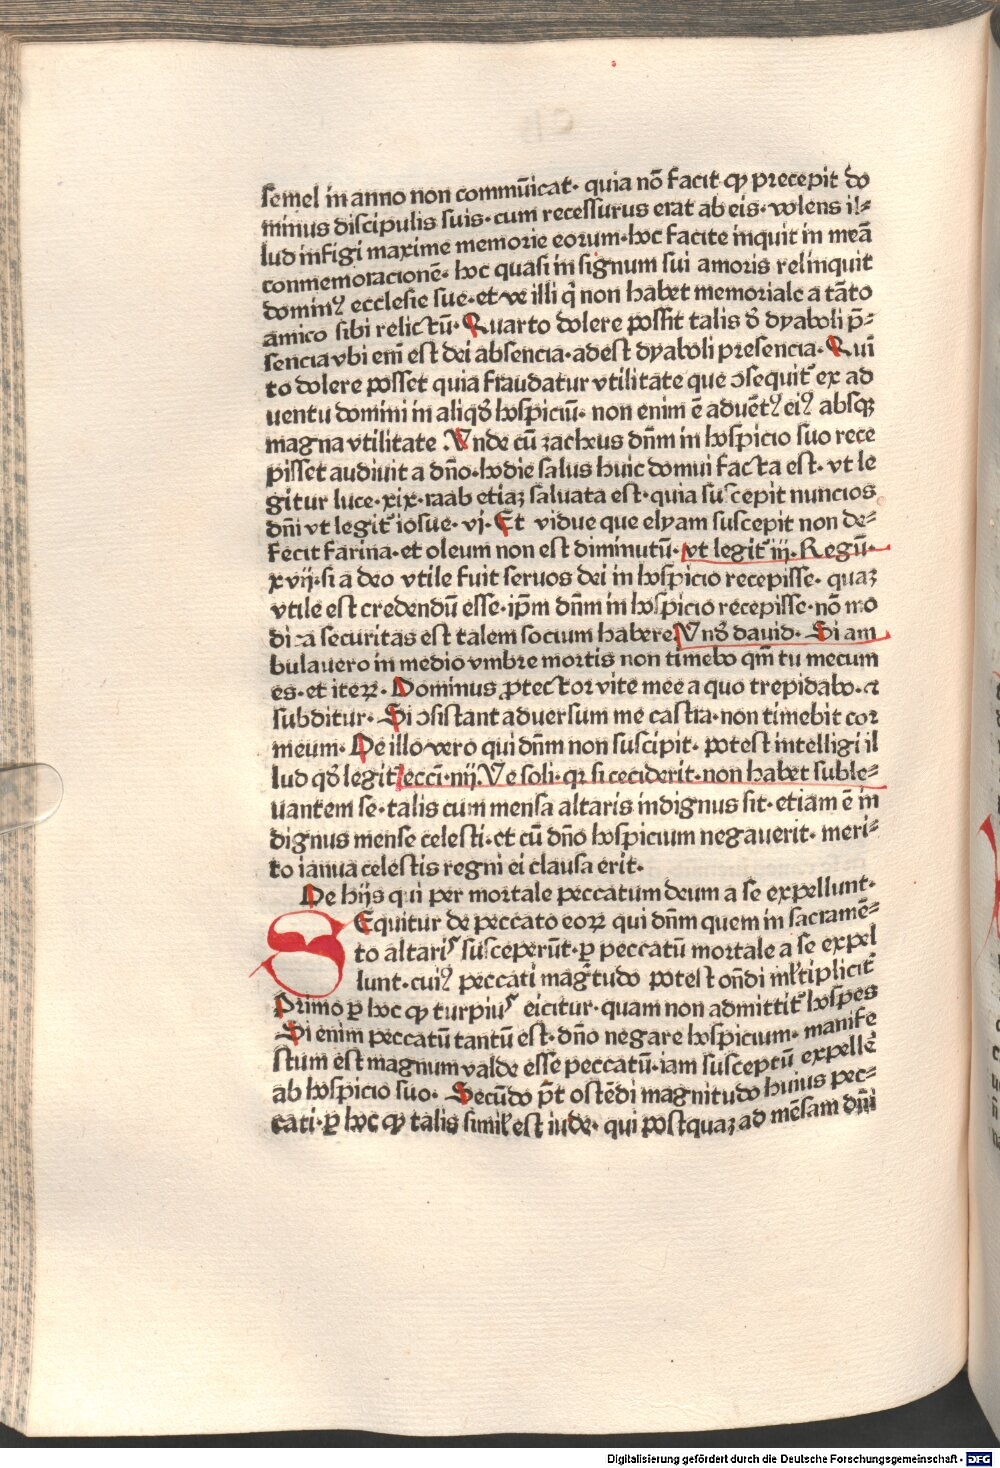 semel in anno non commūicat· quia nō facit ꝙ precepit do
minus discipulis suis·cum recessurus erat ab eis·volens il⸗
lud infigi maxime memorie eorum·hoc facite inquit in meā
conmemoracionē· hoc quasi in signum sui amoris relinquit
dominꝰ ecclesie sue·et ve illi q̄ non habet memoriale a tāto
amico sibi relictū· Quarto dolere possit talis qꝫ dyaboli p̄⸗
sencia vbi eni͞ est dei absencia·adest dyaboli presencia· Qui͞
to dolere posset quia fraudatur vtilitate que ꝯsequit᷑ ex ad
uentu domini in aliqd̛ hospiciū· non enim ē aduētꝰ eiꝰ absqꝫ
magna vtilitate Vnde cū zacheus dn̄m in hospicio suo rece
pisset audiuit a dn̄o·hodie salus huic domui facta est· vt le
gitur luce·xix·raab etiaꝫ saluata est·quia suscepit nuncios
dn̄i vt legit᷑ iosue·vj· Et vidue que elyam suscepit non de⸗
fecit farina·et oleum non est diminutū· vt legit᷑ iij·Regū·
xvij·si a deo vtile fuit seruos dei in hospicio recepisse· quaꝫ
vtile est credendū esse·ip̄m dn̄m in hospicio recepisse·nō mo
dica securitas est talem socium habere Vnd̛ dauid· Si am
bulauero in medio vmbre mortis non timebo qm̄ tu mecum
es·et iteꝝ· Dominus ꝓtector vite mee a quo trepidabo·⁊
subditur· Si ꝯsistant aduersum me castra·non timebit cor
meum· De illo vero qui dn̄m non suscipit· potest intelligi il
lud qd̛ legit᷑ ecci͞·iiij·Ve soli·qꝛ si ceciderit·non habet suble⸗
uantem se·talis cum mensa altaris indignus sit·etiam ē in
dignus mense celesti·et cū dn̄o hospicium negauerit· meri⸗
to ianua celestis regni ei clausa erit·
De hijs qui per mortale peccatum deum a se expellunt·
SEquitur de peccato eoꝝ qui dn̄m quem in sacramē⸗
to altarꝭ susceperūt·ꝑ peccatū mortale a se expel
lunt·cuiꝰ peccati mag̅tudo potest on̄di ml̄tiplicit᷑
Primo ꝑ hoc ꝙ turpiuꝭ eicitur·quam non admittit᷑ hospes
Si enim peccatū tantū est·dn̄o negare hospicium· manife
stum est magnum valde esse peccatū·iam susceptū expellē
ab hospicio suo· Secūdo p̄t ostēdi magnitudo huius pec⸗
cati·ꝑ hoc ꝙ talis simil̛ est iude· qui postquaꝫ ad mēsam dn̄i
Digitalisierung gefördert durch die Deutsche Forschungsgemeinschaft - DFG